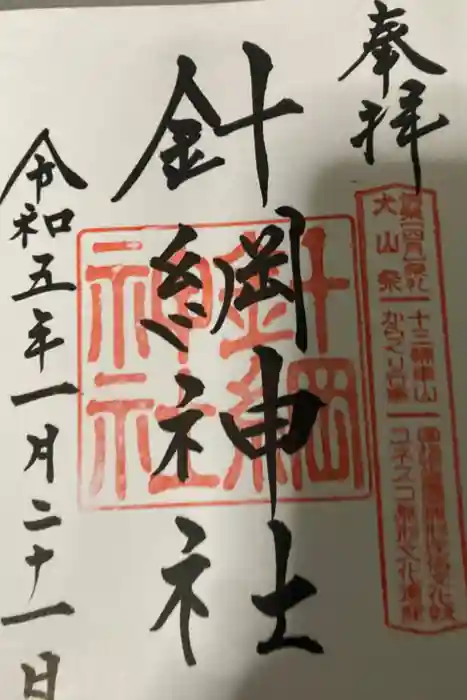 奉拝
犬山祭
十三輌車山
からくり
ユネスコ無形文化遺産
針綱神社
針綱神社
令和五年一月二十一日